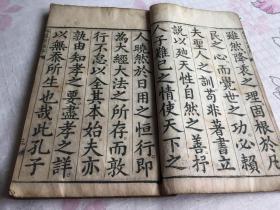 雖然降衷之理固根於凡
民之心而覺世之功必賴
大聖人之訓苟非著書立
說以發天性自然之善抒
人子難已之情使天下之
人曉然於日用之恒行即
為大經大法之所存而敦
行不怠以全其本始夫亦
孰由知孝之要盡孝之詳
以無忝所生也哉此孔子